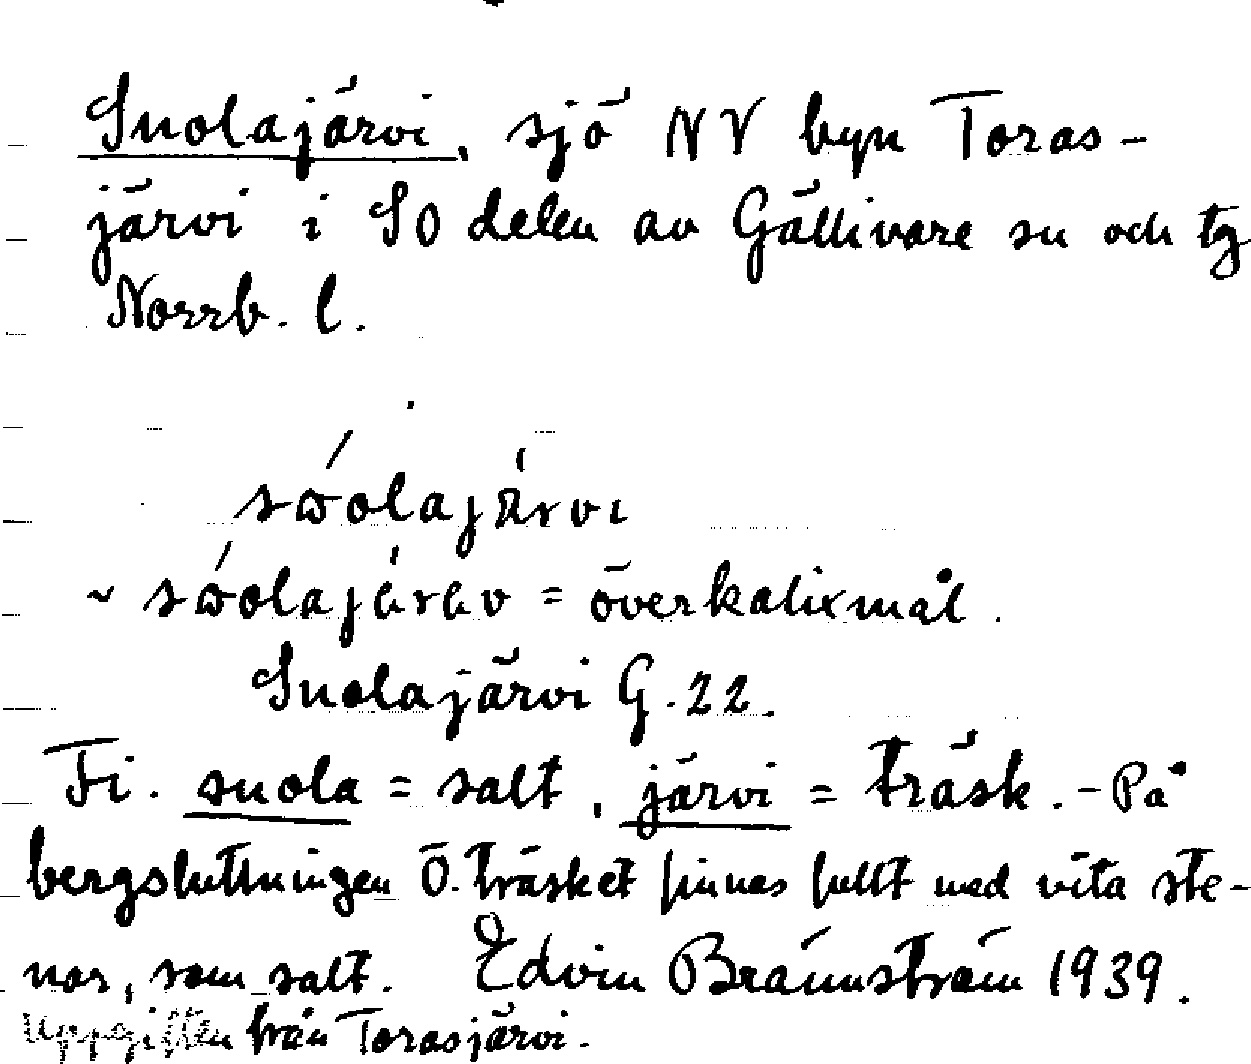 Suolajärvi, sjö NV byn Toras-
järvi i SO delen av Gällivare sn och tg
Norrb. l.
sωólajärvi
~ sωólajàrav = överkalixmål.
Suolajärvi G.22.
Fi. suola = salt, järvi = träsk. - På
bergsluttningen Ö. träsket finnes fullt med vita ste-
nar, som salt. Edvin Brännström 1939.
Uppgiften från Torasjärvi.